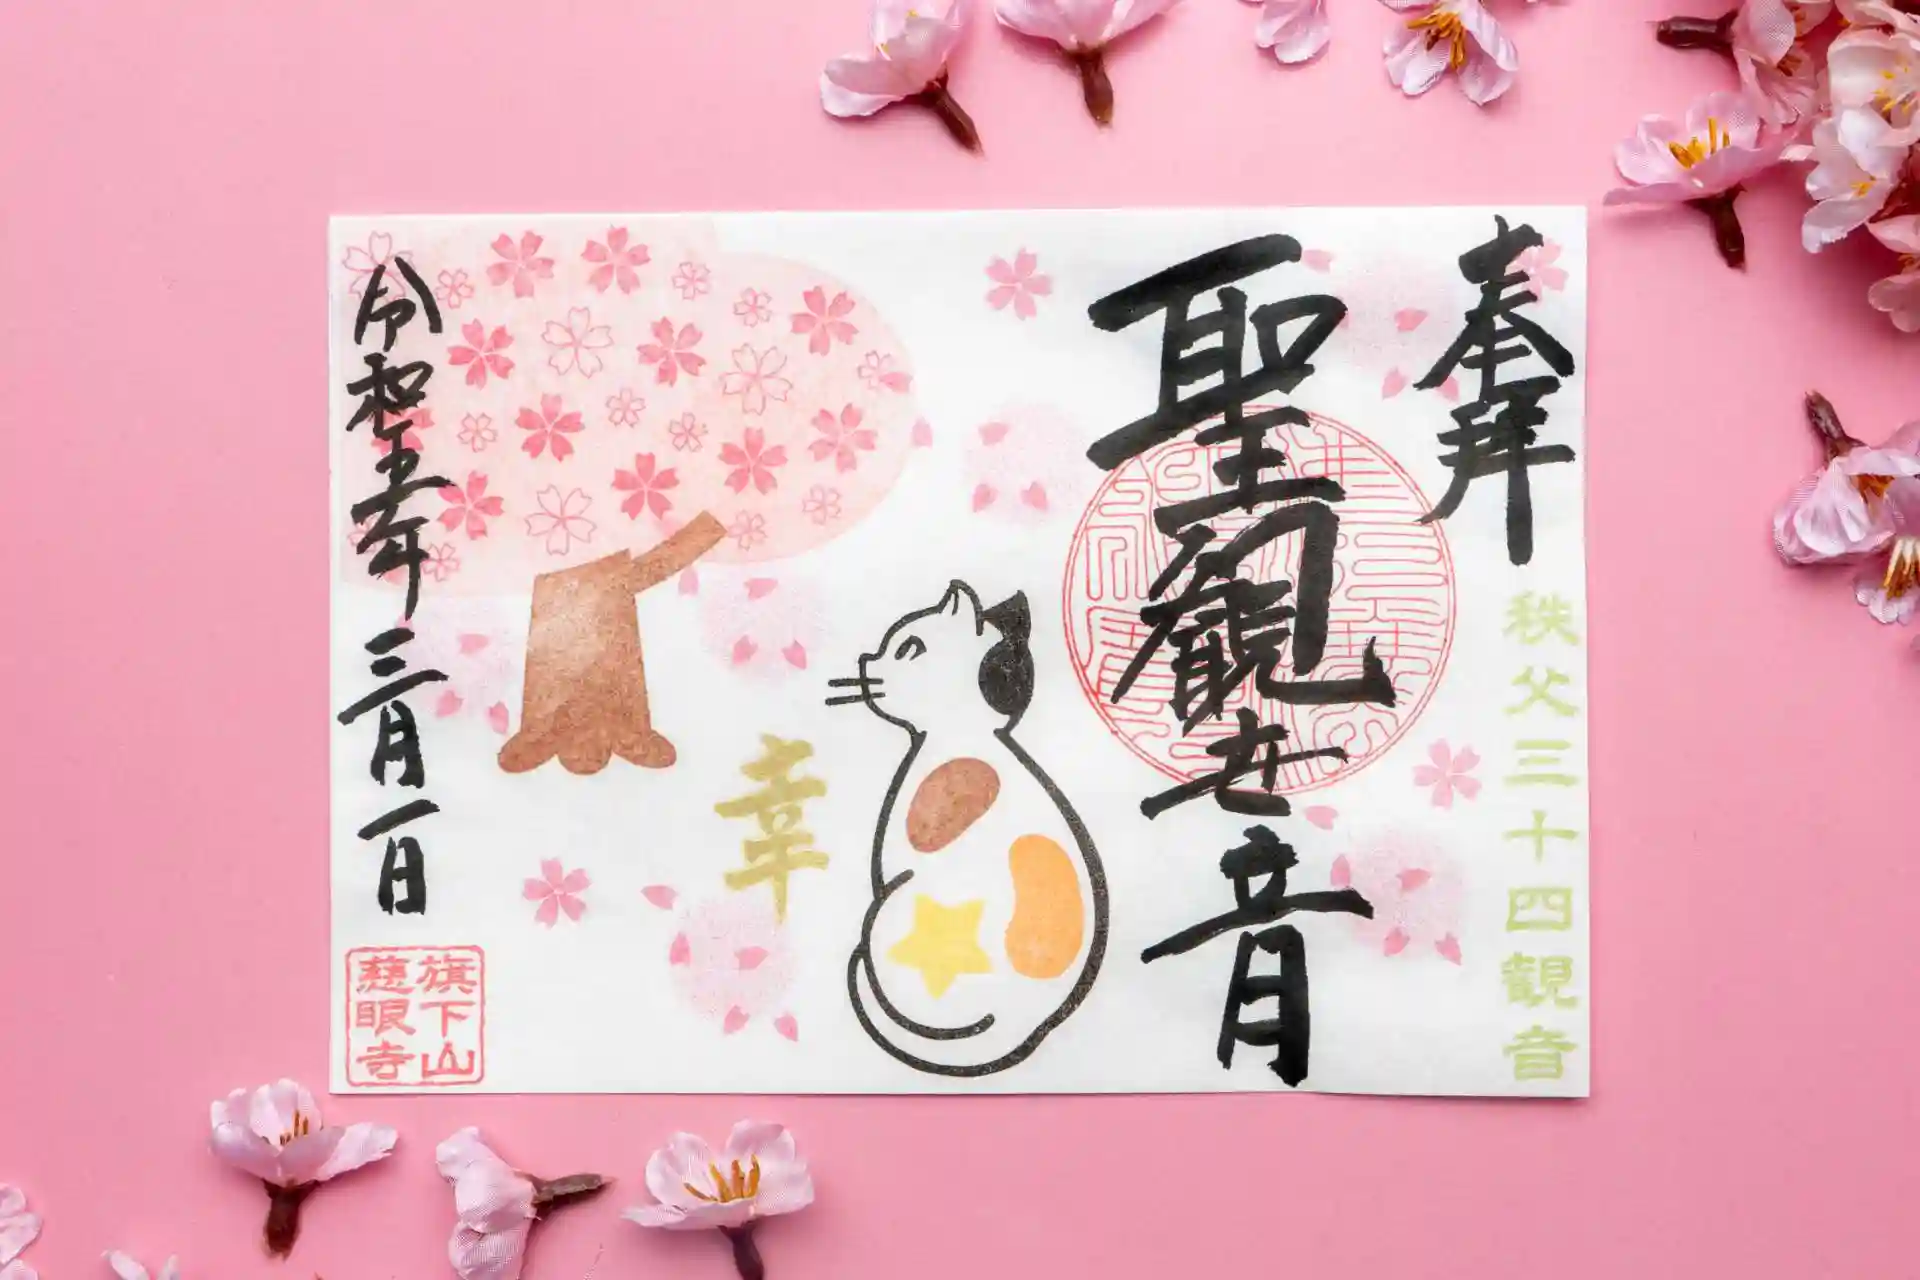 奉拝
秩父三十四観音
聖観世音
幸
令和五年三月一日
旗下山
慈眼寺